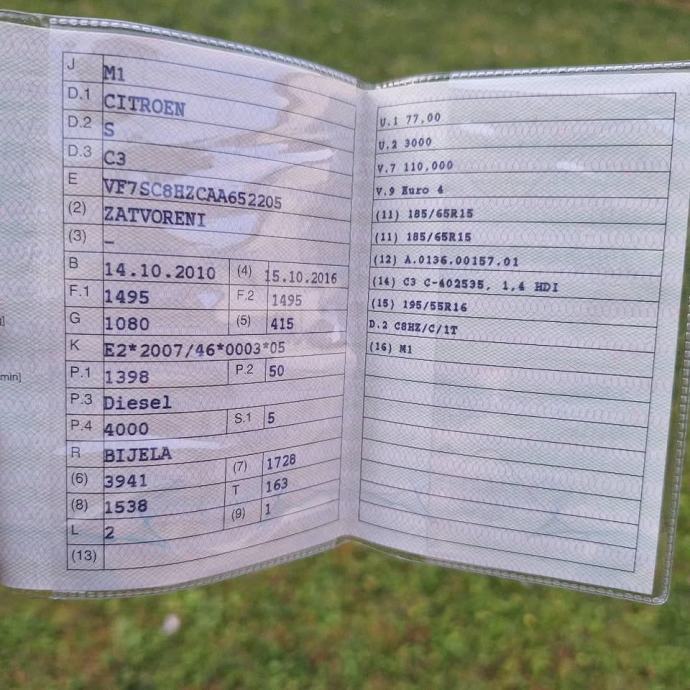 J M1
D.1 CITROEN
D.2 S
D.3 C3
E VF7SC8HZCAA652205
(2) ZATVORENI
(3) –
B 14.10.2010 (4) 15.10.2016
F.1 1495 F.2 1495
G 1080 (5) 415
K E2*2007/46*0003*05
P.1 1398 P.2 50
P.3 Diesel
P.4 4000 S.1 5
R BIJELA
(6) 3941 (7) 1728
(8) 1538 T 163
L 2 (9) 1
(13)
U.1 77,00
U.2 3000
V.7 110,000
V.9 Euro 4
(11) 185/65R15
(11) 185/65R15
(12) A.0136.00157.01
(14) C3 C-402535, 1,4 HDI
(15) 195/55R16
D.2 C8HZ/C/1T
(16) M1
min]